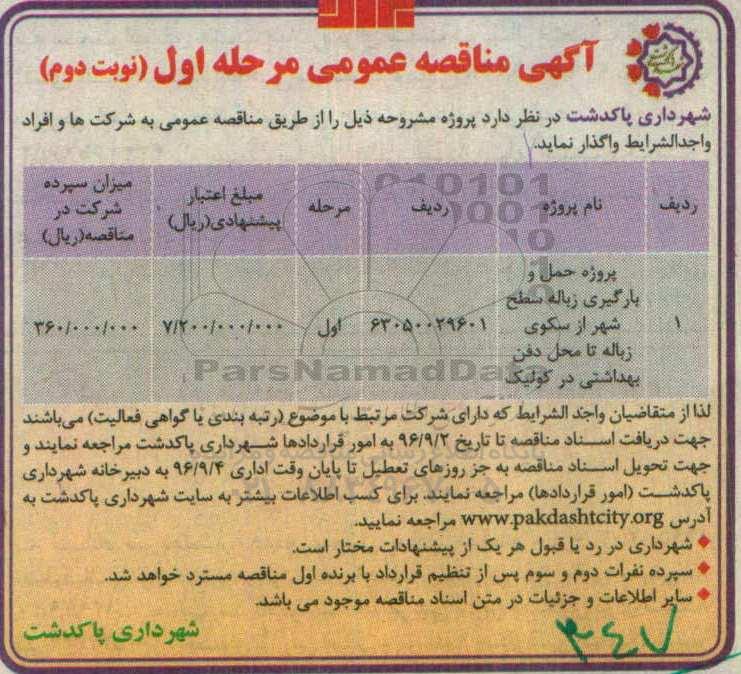 آگهی مناقصه عمومی مرحله اول (نوبت دوم)
شهرداری پاکدشت در نظر دارد پروژه مشروحه ذیل را از طریق مناقصه عمومی به شرکت ها و افراد
واجدالشرایط واگذار نماید.
ردیف | نام پروژه | ردیف | مرحله | مبلغ اعتبار پیشنهادی(ریال) | میزان سپرده شرکت در مناقصه(ریال)
۱ | پروژه حمل و بارگیری زباله سطح شهر از سکوی زباله تا محل دفن بهداشتی در کولیک | ۶۳۰۵۰۰۲۹۶۰۱ | اول | ۷/۲۰۰/۰۰۰/۰۰۰ | ۳۶۰/۰۰۰/۰۰۰
ParsNamadData
لذا از متقاضیان واجد الشرایط که دارای شرکت مرتبط با موضوع (رتبه بندی یا گواهی فعالیت) می‌باشند
جهت دریافت اسناد مناقصه تا تاریخ ۹۶/۹/۲ به امور قراردادها شهرداری پاکدشت مراجعه نمایند و
جهت تحویل اسناد مناقصه به جز روزهای تعطیل تا پایان وقت اداری ۹۶/۹/۴ به دبیرخانه شهرداری
پاکدشت (امور قراردادها) مراجعه نمایند. برای کسب اطلاعات بیشتر به سایت شهرداری پاکدشت به
آدرس www.pakdashtcity.org مراجعه نمایید.
♦ شهرداری در رد یا قبول هر یک از پیشنهادات مختار است.
♦ سپرده نفرات دوم و سوم پس از تنظیم قرارداد با برنده اول مناقصه مسترد خواهد شد.
♦ سایر اطلاعات و جزئیات در متن اسناد مناقصه موجود می باشد.
شهرداری پاکدشت
۳۴۷